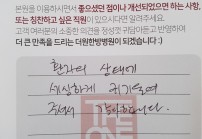 본원을 이용하시면서 좋으셨던 점이나 개선되었으면 하는 사항,
또는 칭찬하고 싶은 직원이 있으시다면 알려주세요.
고객 여러분의 소중한 의견을 정성껏 귀담아듣고 반영하여
더 큰 만족을 드리는 더원한방병원이 되겠습니다 :)
환자의 상태에
세심하게 귀기울여
주셔서 감사합니다.
THE
ONE